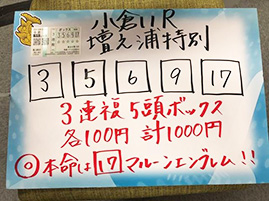 小倉11R
増え浦特別
3 5 6 9 17
3連複5頭ボックス
各100円 計1000円
◎本命は17マルーンエンブレム!!